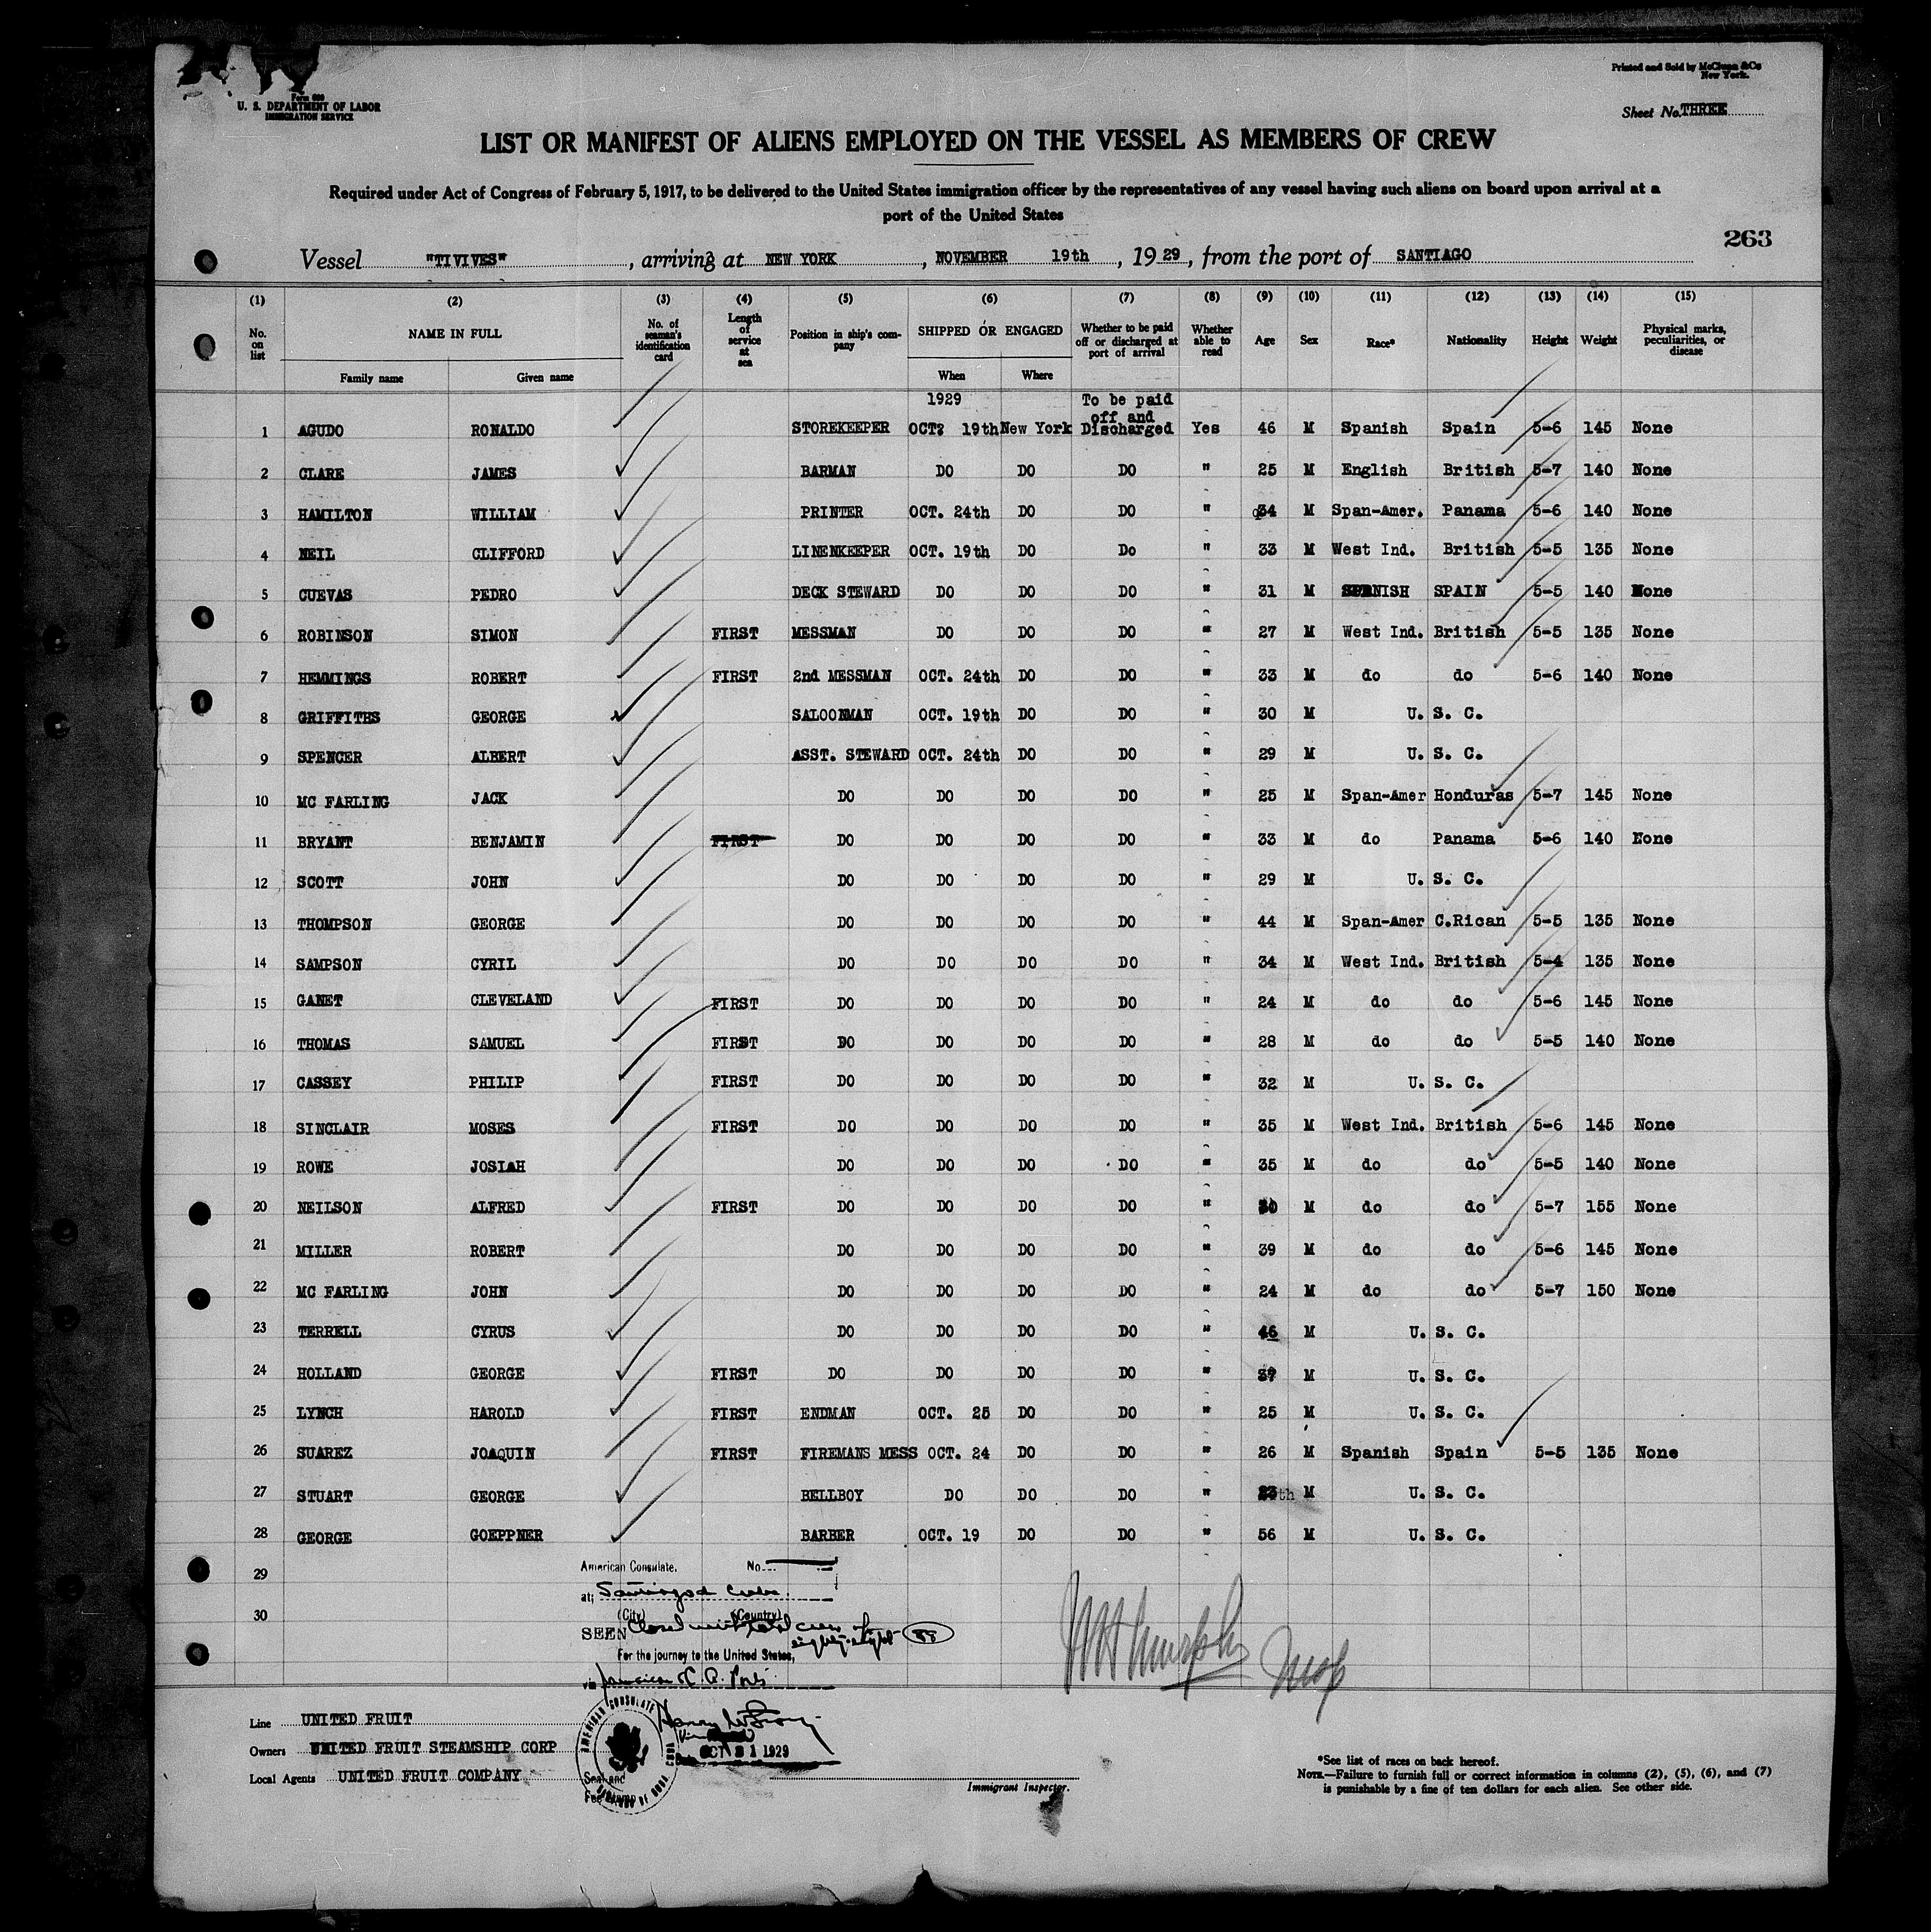 Form 680
U. S. DEPARTMENT OF LABOR
IMMIGRATION SERVICE
Printed and Sold by McClunn & Co
New York.
Sheet No. THREE
LIST OR MANIFEST OF ALIENS EMPLOYED ON THE VESSEL AS MEMBERS OF CREW
Required under Act of Congress of February 5, 1917, to be delivered to the United States immigration officer by the representatives of any vessel having such aliens on board upon arrival at a
port of the United States
263
Vessel "TIVIVES", arriving at NEW YORK, NOVEMBER 19th, 1929, from the port of SANTIAGO
(1) (2) (3) (4) (5) (6) (7) (8) (9) (10) (11) (12) (13) (14) (15)
No. on list NAME IN FULL No. of seaman's identification card Length of service at sea Position in ship's company SHIPPED OR ENGAGED Whether to be paid off or discharged at port of arrival Whether able to read Age Sex Race* Nationality Height Weight Physical marks, peculiarities, or disease
Family name Given name When Where
1929 To be paid off and
1 AGUDO RONALDO STOREKEEPER OCT. 19th New York Discharged Yes 46 M Spanish Spain 5-6 145 None
2 CLARE JAMES BARMAN DO DO DO " 25 M English British 5-7 140 None
3 HAMILTON WILLIAM PRINTER OCT. 24th DO DO " 34 M Span-Amer. Panama 5-6 140 None
4 NEIL CLIFFORD LINENKEEPER OCT. 19th DO Do " 33 M West Ind. British 5-5 135 None
5 CUEVAS PEDRO DECK STEWARD DO DO DO " 31 M SPANISH SPAIN 5-5 140 None
6 ROBINSON SIMON FIRST MESSMAN DO DO DO " 27 M West Ind. British 5-5 135 None
7 HEMMINGS ROBERT FIRST 2nd MESSMAN OCT. 24th DO DO " 33 M do do 5-6 140 None
8 GRIFFITHS GEORGE SALOONMAN OCT. 19th DO DO " 30 M U. S. C.
9 SPENCER ALBERT ASST. STEWARD OCT. 24th DO DO " 29 M U. S. C.
10 MC FARLING JACK DO DO DO DO " 25 M Span-Amer Honduras 5-7 145 None
11 BRYANT BENJAMIN FIRST DO DO DO DO " 33 M do Panama 5-6 140 None
12 SCOTT JOHN DO DO DO DO " 29 M U. S. C.
13 THOMPSON GEORGE DO DO DO DO " 44 M Span-Amer C.Rican 5-5 135 None
14 SAMPSON CYRIL DO DO DO DO " 34 M West Ind. British 5-4 135 None
15 GANET CLEVELAND FIRST DO DO DO DO " 24 M do do 5-6 145 None
16 THOMAS SAMUEL FIRST DO DO DO DO " 28 M do do 5-5 140 None
17 CASSEY PHILIP FIRST DO DO DO DO " 32 M U. S. C.
18 SINCLAIR MOSES FIRST DO DO DO DO " 35 M West Ind. British 5-6 145 None
19 ROWE JOSIAH DO DO DO DO " 35 M do do 5-5 140 None
20 NEILSON ALFRED FIRST DO DO DO DO " 30 M do do 5-7 155 None
21 MILLER ROBERT DO DO DO DO " 39 M do do 5-6 145 None
22 MC FARLING JOHN DO DO DO DO " 24 M do do 5-7 150 None
23 TERRELL CYRUS DO DO DO DO " 46 M U. S. C.
24 HOLLAND GEORGE FIRST DO DO DO DO " 37 M U. S. C.
25 LYNCH HAROLD FIRST ENDMAN OCT. 25 DO DO " 25 M U. S. C.
26 SUAREZ JOAQUIN FIRST FIREMANS MESS OCT. 24 DO DO " 26 M Spanish Spain 5-5 135 None
27 STUART GEORGE BELLBOY DO DO DO " 23 M U. S. C.
28 GEORGE GOEPPNER BARBER OCT. 19 DO DO " 56 M U. S. C.
29
30
American Consulate, No.
at; Santiago de Cuba.
(City) (Country)
SEEN Closed with total crew of
eighty-eight 88
For the journey to the United States,
via Jamaica & C. A. Ports
W H Murphy
Line UNITED FRUIT
Owners UNITED FRUIT STEAMSHIP CORP
Local Agents UNITED FRUIT COMPANY
AMERICAN CONSULATE
CUBA
Seal and
Fee Stamp
Date OCT 31 1929
Immigrant Inspector.
*See list of races on back hereof.
NOTE.—Failure to furnish full or correct information in columns (2), (5), (6), and (7)
is punishable by a fine of ten dollars for each alien. See other side.